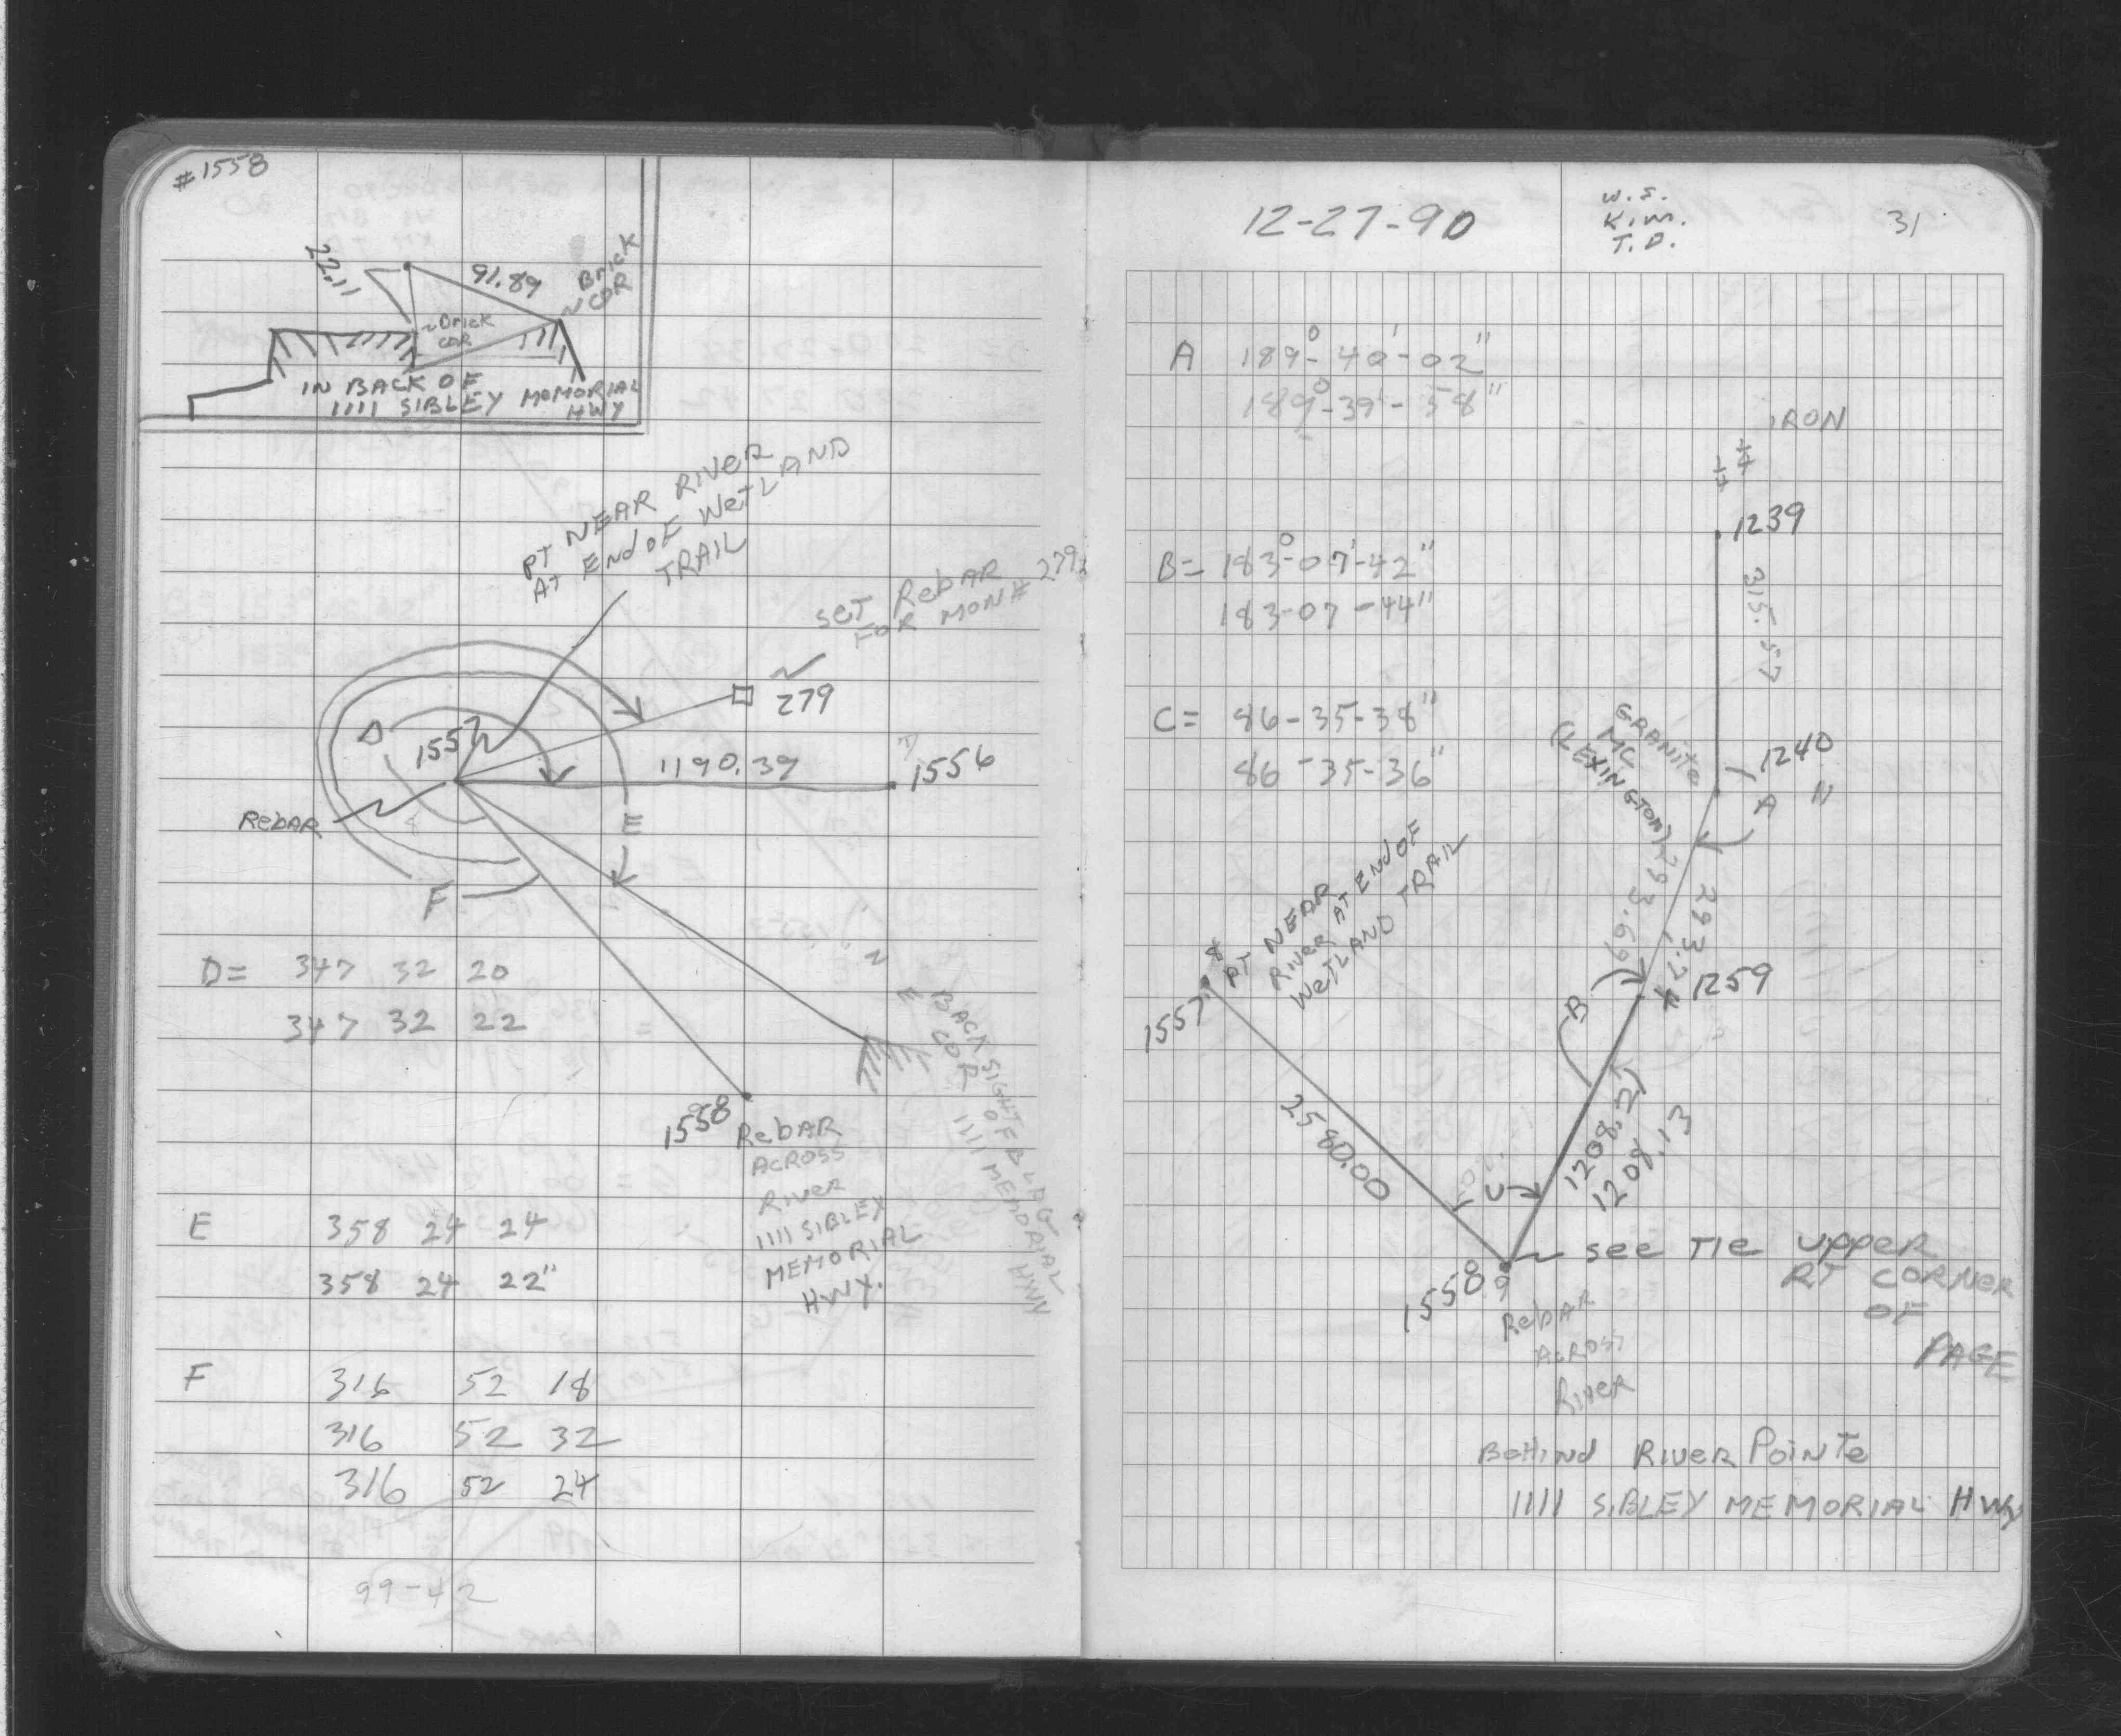 #1558
22.11
91.89
Brick
COR
Brick
COR
IN BACK OF
1111 SIBLEY MOMORIAL
HWY
PT NEAR RIVER
AT End OF WeTLAND
TRAIL
SeT RebAR
FOR MON# 279
279
D
1557
1190.39
1556
RebAR
E
F
D= 347 32 20
347 32 22
BACK SIGHT
COR OF BLDG
1111 MEMORIAL
HWY
1558
RebAR
ACROSS
RIVeR
1111 SIBLEY
MEMORIAL
HWY.
E 358 24 24
358 24 22"
F 316 52 18
316 52 32
316 52 24
99-42
12-27-90
W.S.
K.M.
T.D.
31
A 189°-40'-02"
189°-39'-58"
IRON
1239
315.57
B= 183°-07'-42"
183-07-44"
C= 86-35-38"
86-35-36"
GRANite
MC
(LEXINGTON)
1240
A "
293.69
293.74
1259
B
PT NEAR
RIVeR AT End OF
WeTLAND TRAIL
1557
2580.00
1208.21
1208.13
C
1558
see TIe UPPeR
RT CORNeR
OF
PAGE
RebAR
ACROSS
RIVeR
BeHInd RIVeR PoinTe
1111 SIBLEY MEMORIAL HWY